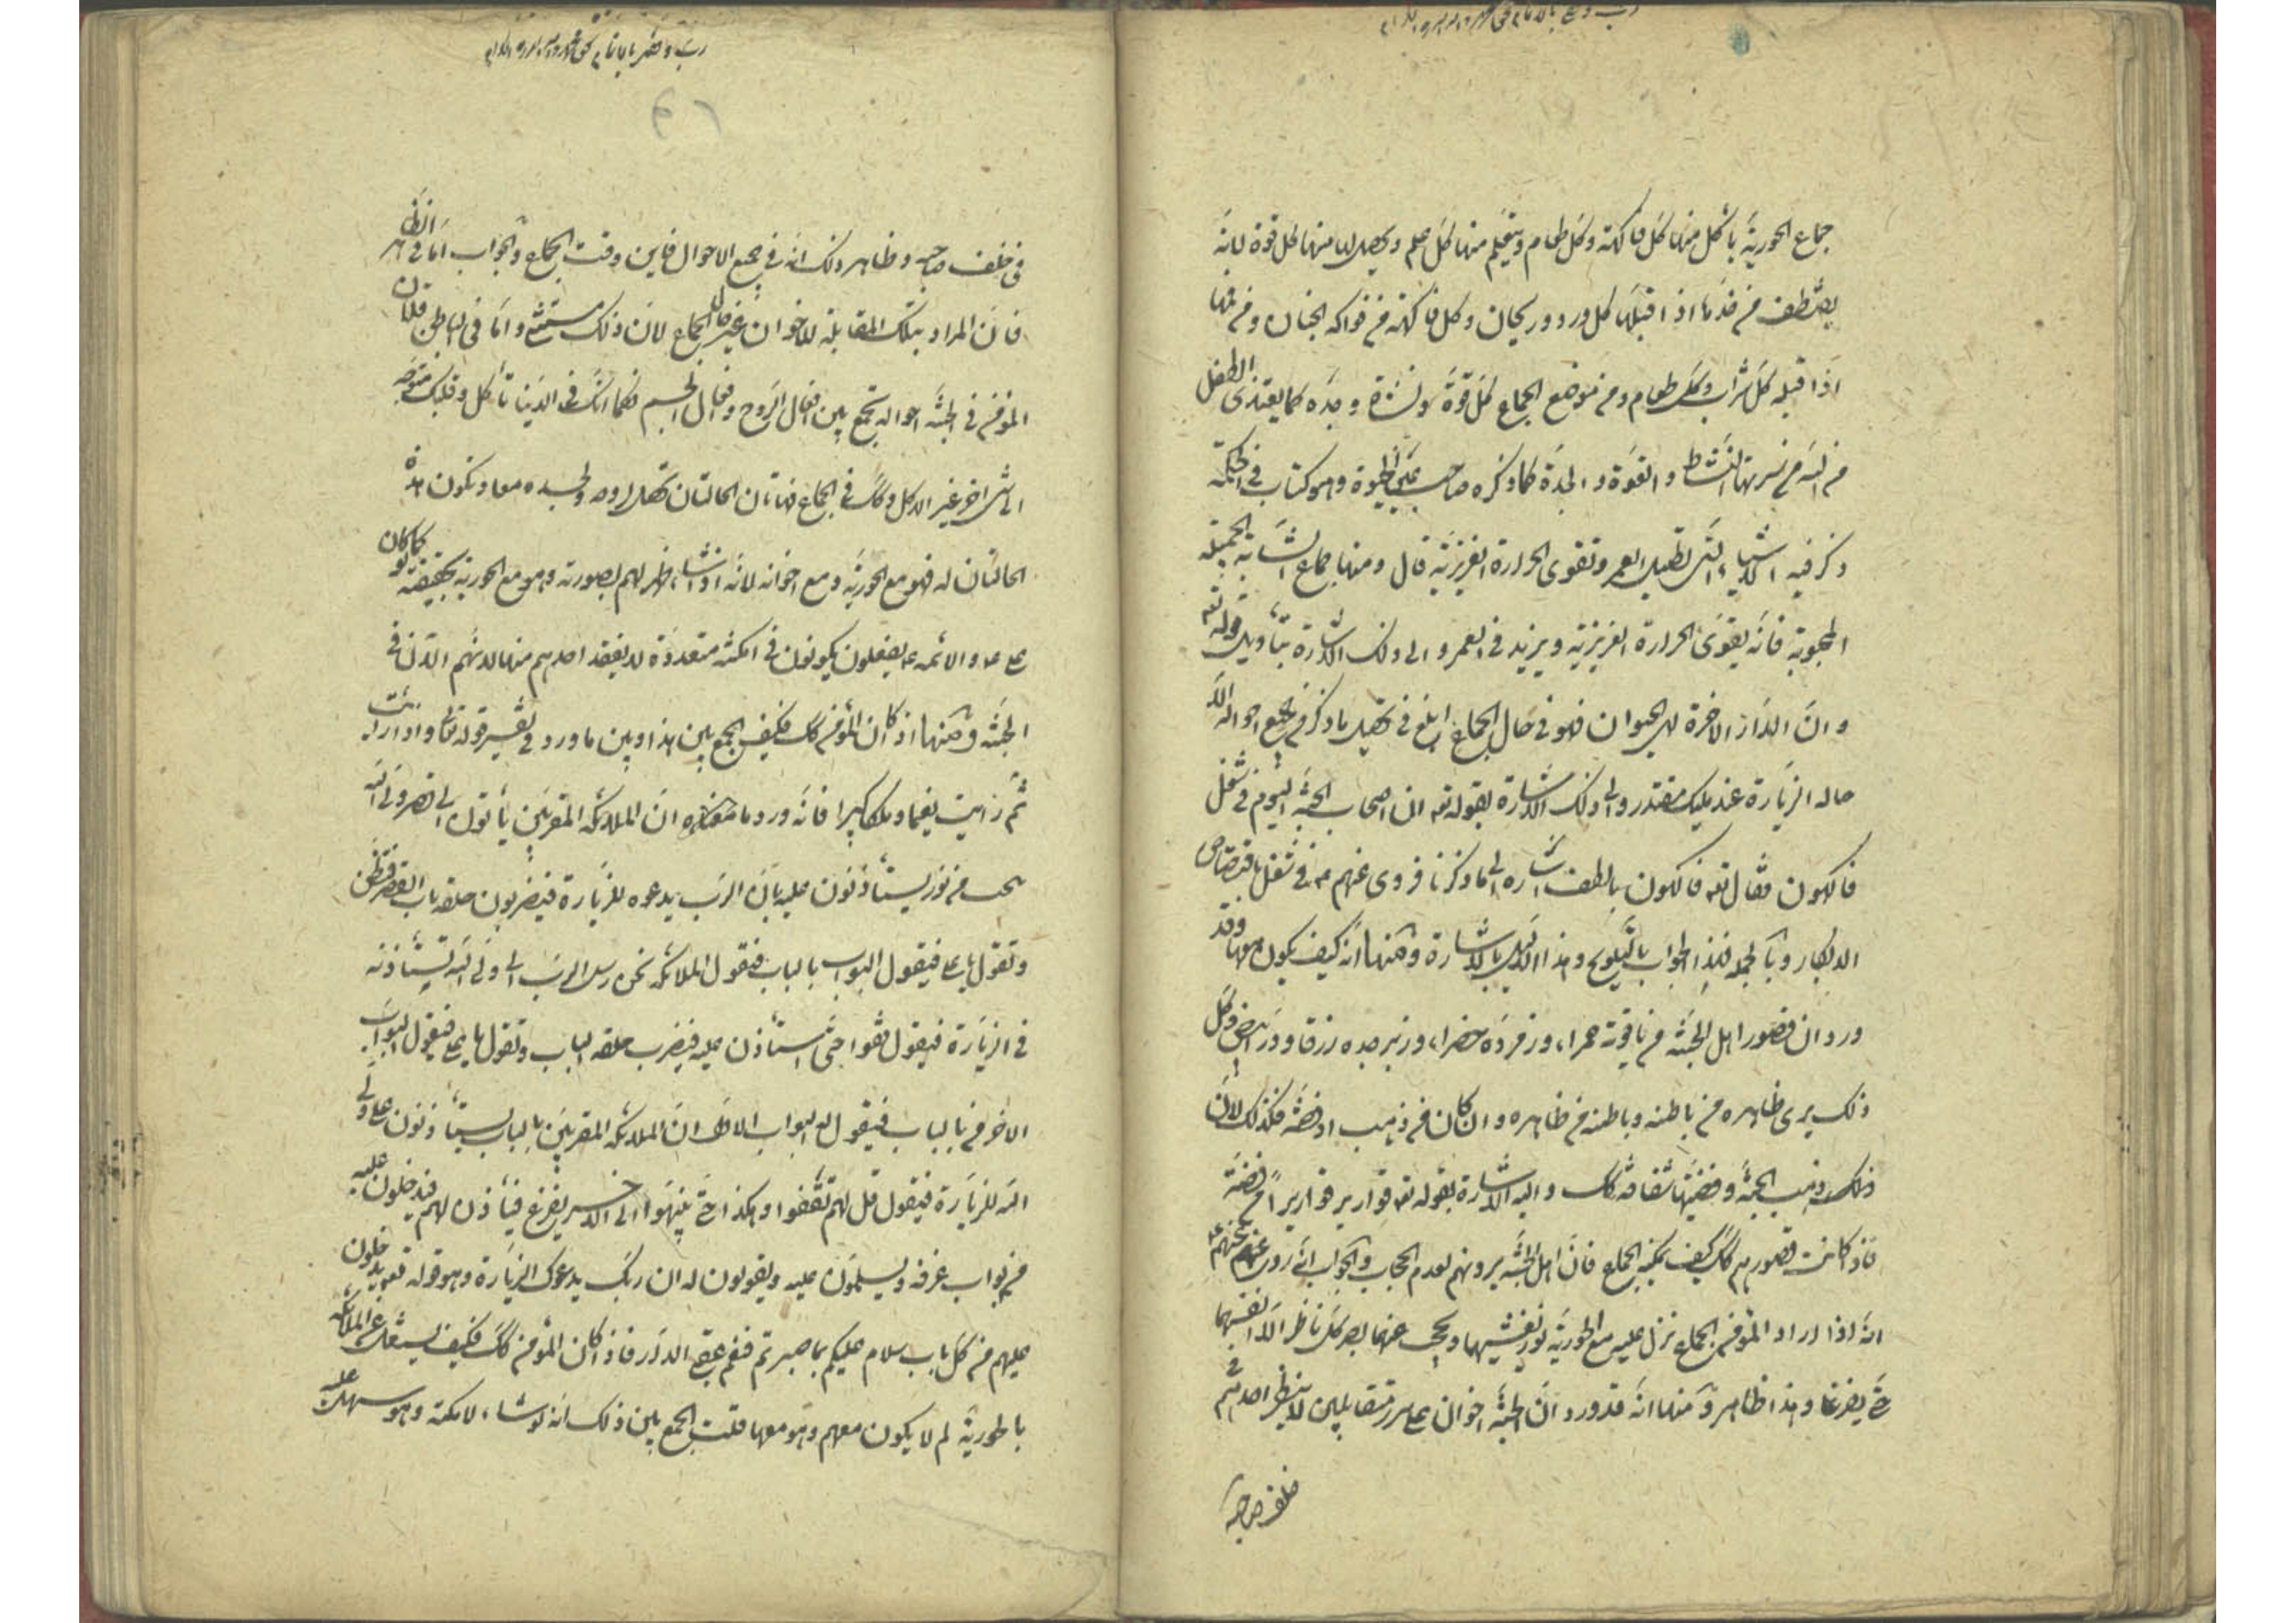 جماع الحوریّة یأکل منها کلّ فاکهة وکلّ طعام ویتعلم منها کلّ علم ویحصل له منها کل قوة لانّه
یقتطف من خدّها اذا قبّلها کل ورد وریحان وکل فاکهة من فواکه الجنان ومن فمها
اذا قبله کلّ شراب وکلّ طعام ومن موضع الجماع کلّ قوّة ونشاة وجدّه کما یغتذی الطفل
النشاط والقوّة والجدّة کما ذکره صاحب الحیوة وهو کتاب فی الحکمة
ذکر فیه الاشیاء التی تطیل العمر وتقوی الحرارة الغریزیّة قال ومنها جماع الشابّة الجمیلة
المحبوبة فانّه یقوّی الحرارة الغریزیّة ویزید فی العمر والی ذلک الاشارة بتأویل قوله تعه
وانّ الدّار الاخرة لهی الحیوان فهو فی حال الجماع ابلغ فی تحصیل ما ذکر من جمیع احواله الّا
حالة الزیارة عند ملیک مقتدر والی ذلک الاشارة بقوله تعه ان اصحاب الجنّة الیوم فی شغل
فاکهون فقال تعه فاکهون بالطف اشارة الی ما ذکرنا فروی عنهم ع فی شغل بافتضاض
الابکار وبالجملة فهذا الجواب بالتلویح وهذا الدلیل بالاشارة ومنها انّه کیف یکون معها وقد
ورد ان قصور اهل الجنّة من یاقوتة حمراء وزمردة خضراء وزبرجده زرقا ودرّ ابیض وکل
ذلک یری ظاهره من باطنه وباطنه من ظاهره وان کان من ذهب او فضّة فکذلک لانّ
ذلک ذهب الجنّة وفضّتها شفافة کک والیه الاشارة بقوله تعه قواریر قواریر من فضّة
فاذا کانت قصورهم کک کیف یمکنه الجماع فانّ اهل الجنّة یرونهم لعدم الحجاب والجواب انّه روی عنهم
انّه اذا اراد المؤمن الجماع نزل علیه مع الحوریّة نور یغشیهما ویحجب عنهما بصر کلّ ناظر الّا انفسهما
حتّی یفرغا وهذا ظاهر ومنها انّه قد ورد انّ اهل الجنّة اخوان علی سرر متقابلین لا ینظر احدهم فی
خلف صاحبه
فی خلف صاحبه وظاهر ذلک انّه فی جمیع الاحوال فاین وقت الجماع والجواب امّا فی الظاهر
فانّ المراد بتلک المقابلة للاخوان غیر حال الجماع لانّ ذلک مستثنی وامّا فی الباطن فلانّ
المؤمن فی الجنّة احواله تجمع بین افعال الرّوح وافعال الجسم فکما انّک فی الدّنیا تأکل وقلبک متوجّه
الی شیء اخر غیر الاکل وکک فی الجماع فهاتان الحالتان تحصل لروحه ولجسده معا وتکون هذه
الحالتان له فهو مع الحوریّة ومع اخوانه لانّه اذا شاء ظهر لهم بصورته وهو مع الحوریّة بحقیقته کما کان
علی ع والائمه ع یفعلون یکونون فی امکنة متعددّة لا یفقد احدهم منها لانّهم الآن فی
الجنّة ومنها اذا کان المؤمن کک فکیف الجمع بین هذا وبین ما ورد فی تفسیر قوله تعالی واذا رأیت
ثمّ رأیت نعیما وملکا کبیرا فانّه ورد ما معناه انّ الملائکة المقرّبین یأتون الی قصر ولیّ الله
یستأذنون علیه بانّ الربّ یدعوه للزّیارة فیضربون حلقة باب القصر فتطنّ
وتقول یا علی فیقول البواب بالباب فتقول الملائکة نحن رسل الربّ الی ولیّ الله نستأذنه
فی الزیارة فیقول قفوا حتّی استأذن علیه فیضرب حلقة الباب وتقول یا علی فیقول البوّاب
الاخر من بالباب فیقول له البواب الاوّل انّ الملائکة المقربّین بالباب یستأذنون علی ولیّ
الله للزیارة فیقول قل لهم تقفوا وهکذا حتّی ینتهوا الی یفرغ فیأذن لهم فیدخلون علیه
من ابواب غرفه ویسلّمون علیه ویقولون له ان ربّک یدعوک الزّیارة وهو قوله تعه یدخلون
علیهم من کلّ باب سلام علیکم بما صبرتم فنعم عقبی الدّار فاذا کان المؤمن کک فکیف یشتغل عن الملائکه
بالحوریّة لم لا یکون معهم وهو معها قلت الجمع بین ذلک انّه لو شاء لامکنه وهو سهل علیه